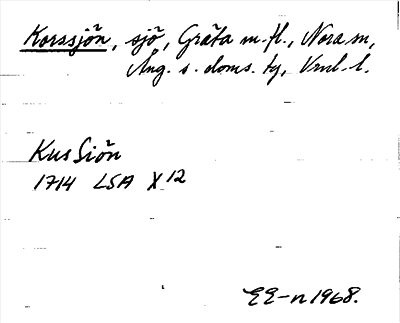 Korssjön, sjö, Gräta m.fl., Nora sn,
Ång. s. doms. tg, Vnrl. l.
Kus Siön
1714 LSA X 12
EE-n 1968.